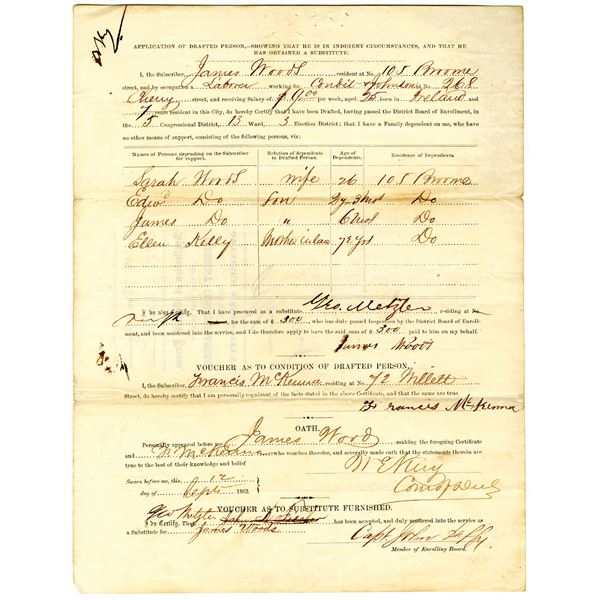 APPLICATION OF DRAFTED PERSON,—SHOWING THAT HE IS IN INDIGENT CIRCUMSTANCES, AND THAT HE
HAS OBTAINED A SUBSTITUTE.
I, the Subscriber, James Woods resident at No. 105 Broome
street, and by occupation a Laborer working for Condit Johnson No. 268
Cherry street, and receiving Salary of $ 9.00 per week, aged 25 born in Ireland and
7 years resident in this City, do hereby Certify that I have been Drafted, having passed the District Board of Enrollment, in
the 5 Congressional District, 13 Ward, 3 Election District; that I have a Family dependent on me, who have
no other means of support, consisting of the following persons, viz:
Names of Persons depending on the Subscriber for support. Relation of dependents to Drafted Person. Age of Dependents. Residence of Dependents.
Sarah Woods wife 26 105 Broome
Edwd Do Son 2y 3 mos Do
James Do " 6 mos Do
Ellen Kelly Mother in law 72 yrs Do
I do also Certify, That I have procured as a substitute Geo. Metzler residing at No.
for the sum of $ 300, who has duly passed Inspection by the District Board of Enroll-
ment, and been mustered into the service, and I do therefore apply to have the said sum of $ 300 paid to him on my behalf.
James Woods
VOUCHER AS TO CONDITION OF DRAFTED PERSON.
I, the Subscriber, Francis McKenna residing at No. 72 Willett
Street, do hereby certify that I am personally cognizant of the facts stated in the above Certificate, and that the same are true.
Francis McKenna
OATH.
Personally appeared before me, James Wood making the foregoing Certificate
and F. McKenna who vouches therefor, and severally made oath that the statements therein are
true to the best of their knowledge and belief
Sworn before me, this 12
day of Sept 1863.
Com of Deeds
VOUCHER AS TO SUBSTITUTE FURNISHED.
Geo Metzler
I do Certify, That has been accepted, and duly mustered into the service as
a Substitute for James Woods
Capt John Duffy
Member of Enrolling Board.